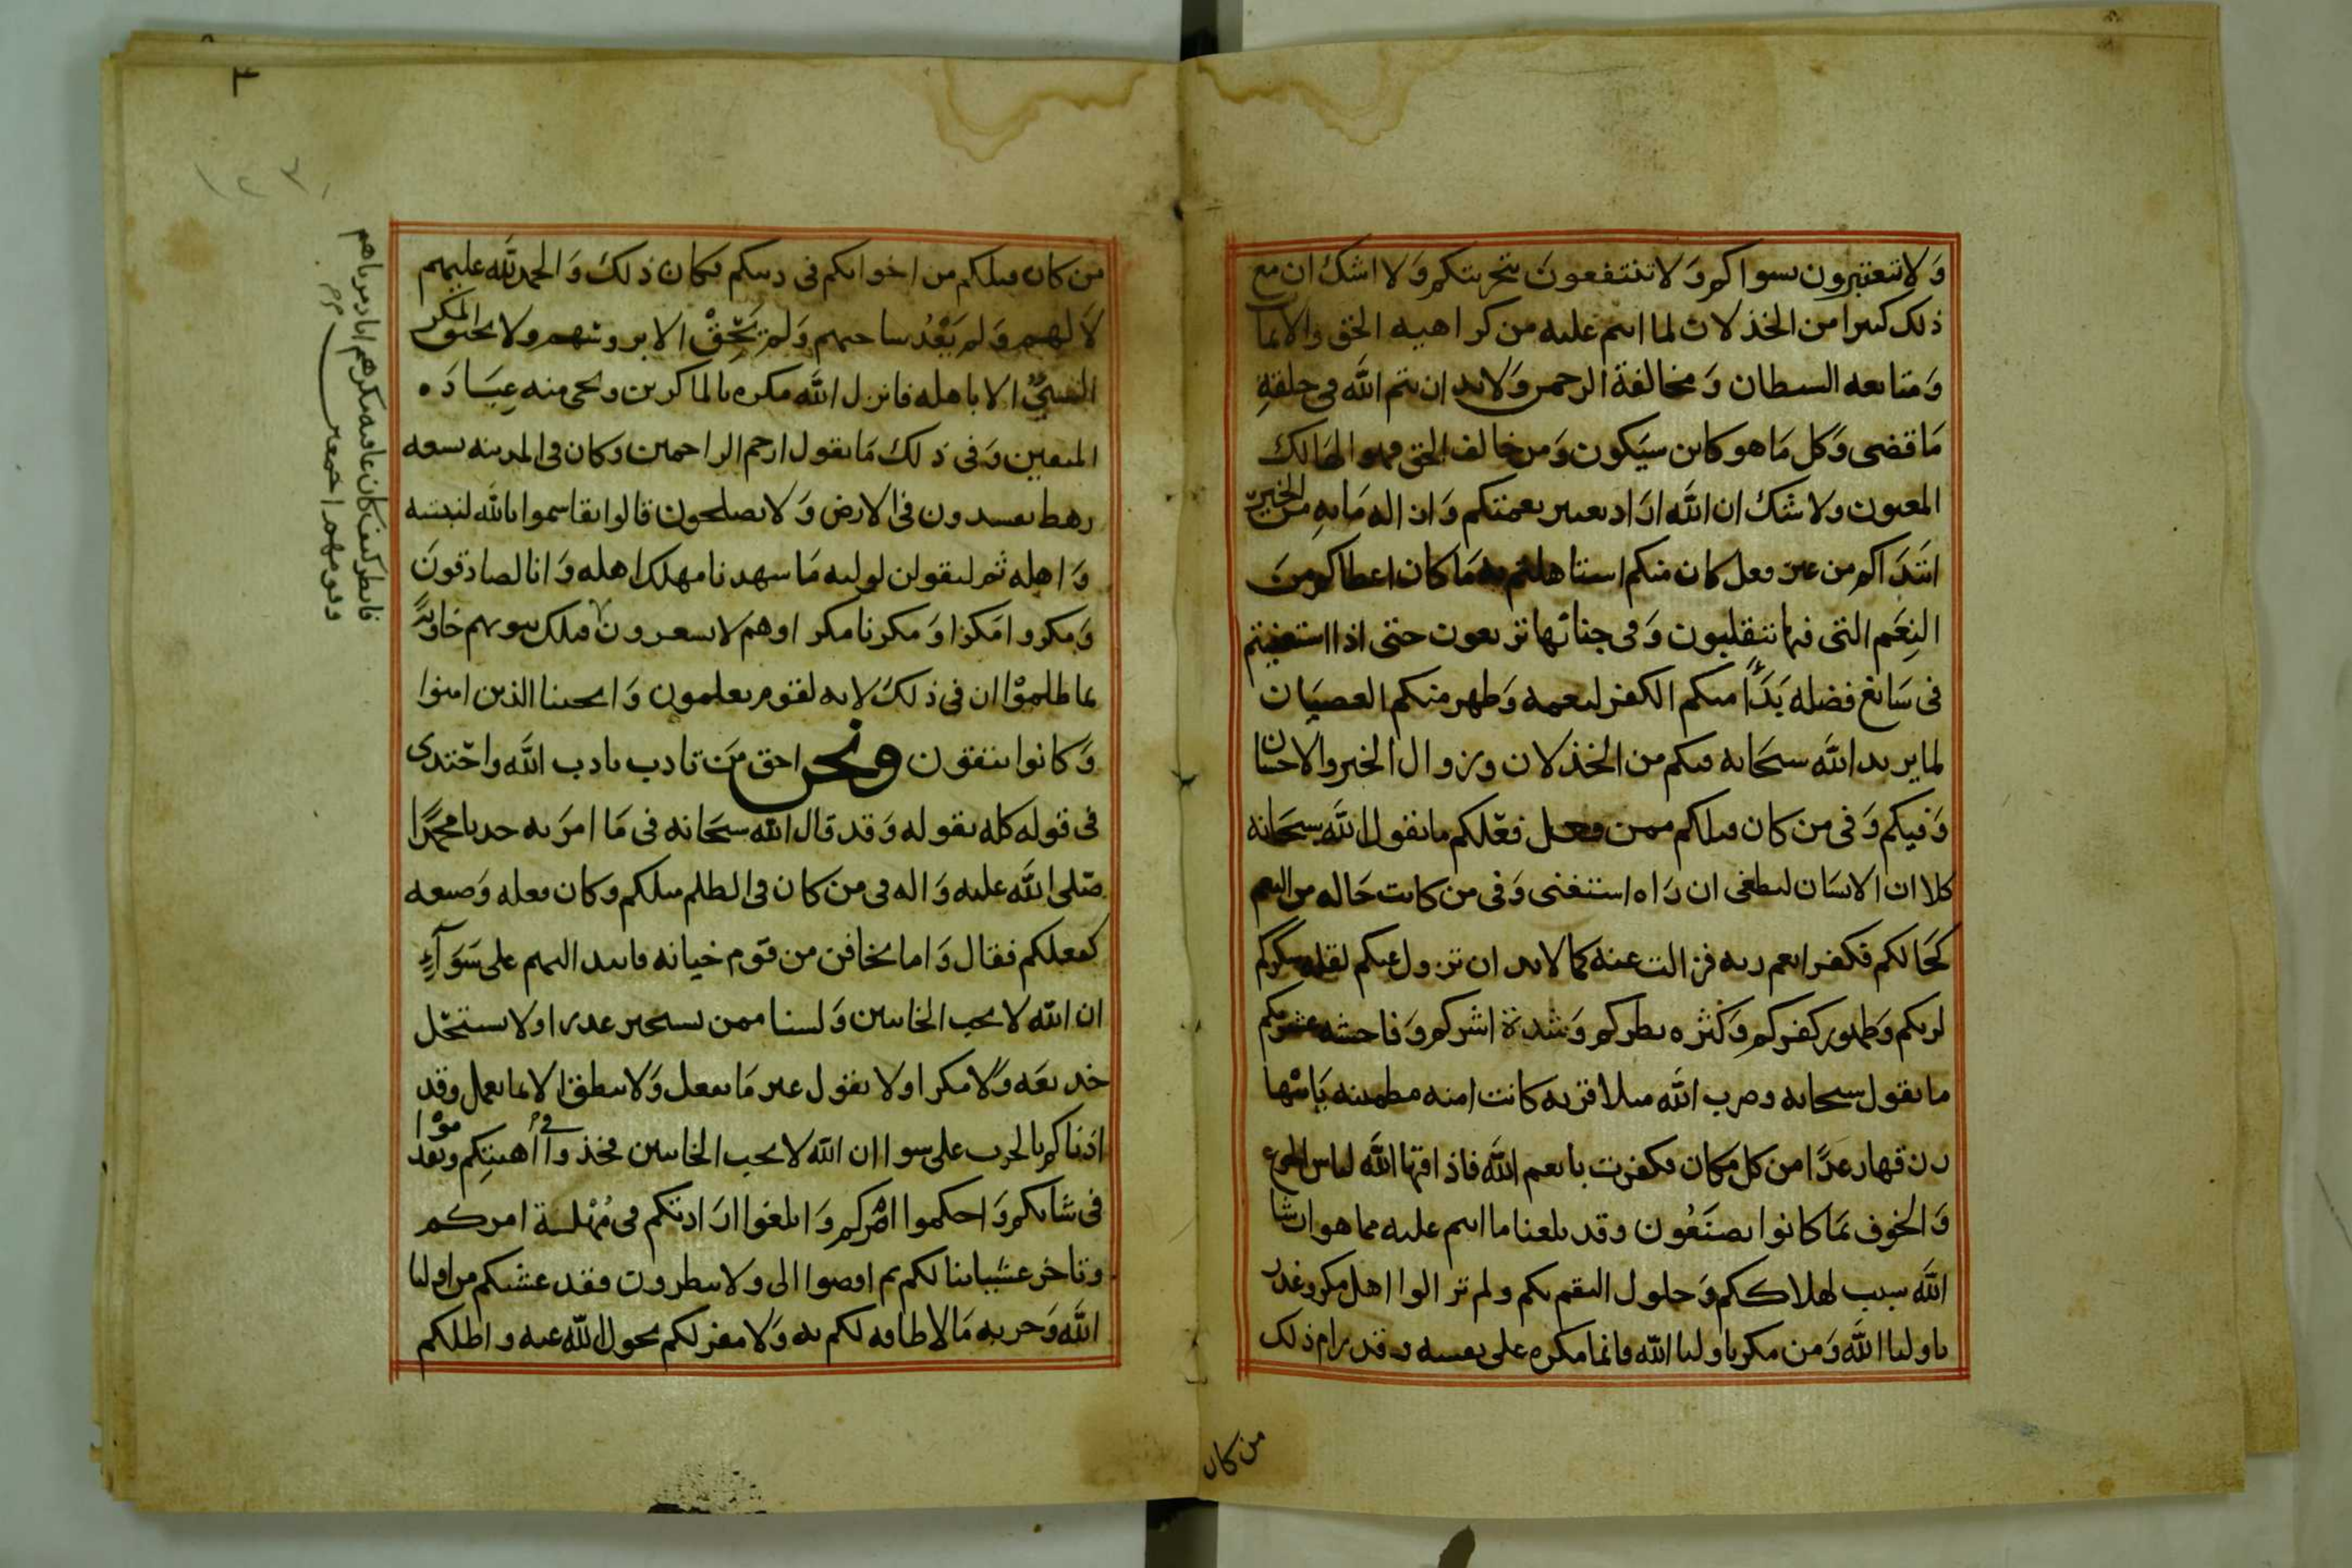 ولا تعتبرون بسواكم ولا تنتفعون بتجربتكم ولا اشك ان مع
ذلك كثيرا من الخذلان لما انتم عليه من كراهية الحق والايمان
ومتابعه الشيطان ومخالفة الرحمن ولا بد ان يتم الله في خلقه
ما قضى وكل ما هو كائن سيكون ومن خالف الحق فهو الهالك
المغبون ولا شك ان الله اراد بغيير نعمتكم وازاله ما به من الخير
ابتداكم من غير فعل كان منكم استاهلتم به ما كان اعطاكم من
النعم التي فيها تتقلبون وفي جناتها ترتعون حتى اذا استغنيتم
في سابغ فضله بدا منكم الكفر لنعمه وظهر منكم العصيان
لما يريد الله سبحانه فيكم من الخذلان وزوال الخير والاحسان
وفيكم وفي من كان قبلكم ممن فعل فعلكم ما يقول الله سبحانه
كلا ان الانسان ليطغى ان راه استغنى وفي من كانت حاله من النعم
كحالكم فكفر انعم ربه فزالت عنه كما لا بد ان تزول عنكم لقله شكركم
لربكم وظهور كفركم وكثره بطركم وشدة اشركم وفاحشه
ما يقول سبحانه وضرب الله مثلا قريه كانت امنه مطمئنه ياتيها
رزقها رغدا من كل مكان فكفرت بانعم الله فاذاقها الله لباس الجوع
والخوف بما كانوا يصنعون وقد بلغنا ما انتم عليه مما هو انشا
الله سبب لهلاككم وحلول النقم بكم ولم تزالوا اهل مكر وغدر
باوليا الله ومن مكر باوليا الله فانما مكره على نفسه وقد رام ذلك
من كان
من كان قبلكم من اخوانكم في دينكم فكان ذلك والحمد لله عليهم
لا لهم ولم يعد ساحتهم ولم يحق الا بروسهم ولا يحيق المكر
السيئ الا باهله فانزل الله مكره بالماكرين ونجى منه عباده
المتقين وفي ذلك ما يقول ارحم الراحمين وكان في المدينه تسعه
رهط يفسدون في الارض ولا يصلحون قالوا تقاسموا بالله لنبيتنه
واهله ثم ليقولن لوليه ما شهدنا مهلك اهله وانا لصادقون
ومكروا مكرا ومكرنا مكرا وهم لا يشعرون فتلك بيوتهم خاويه
بما ظلموا ان في ذلك لايه لقوم يعلمون وانجينا الذين امنوا
وكانوا يتقون ونحن احق من تادب بادب الله واحتذى
في قوله كله بقوله وقد قال الله سبحانه في ما امر به محمدا
صلى الله عليه واله في من كان في الظلم مثلكم وكان فعله وصنعه
كفعلكم فقال واما تخافن من قوم خيانه فانبذ اليهم على سوآء
ان الله لا يحب الخائنين ولسنا ممن يستجيز غدرا ولا يستحل
خديعه ولا مكرا ولا يقول غير ما يفعل ولا ينطق الا بما يعمل وقد
اذناكم بالحرب على سوا ان الله لا يحب الخائنين فخذوا في أهبتكم وتقدموا
في شانكم واحكموا امركم وابلغوا ارادتكم في مهلة امركم
وتاخر عشيباتنا لكم ثم اقضوا الي ولا تنظرون فقد غشيكم من اوليا
الله وحربه ما لا طاقه لكم به ولا مفر لكم بحول الله عنه واظلكم
فانظر كيف كان عاقبه مكرهم انا دمرناهم
وقومهم اجمعين